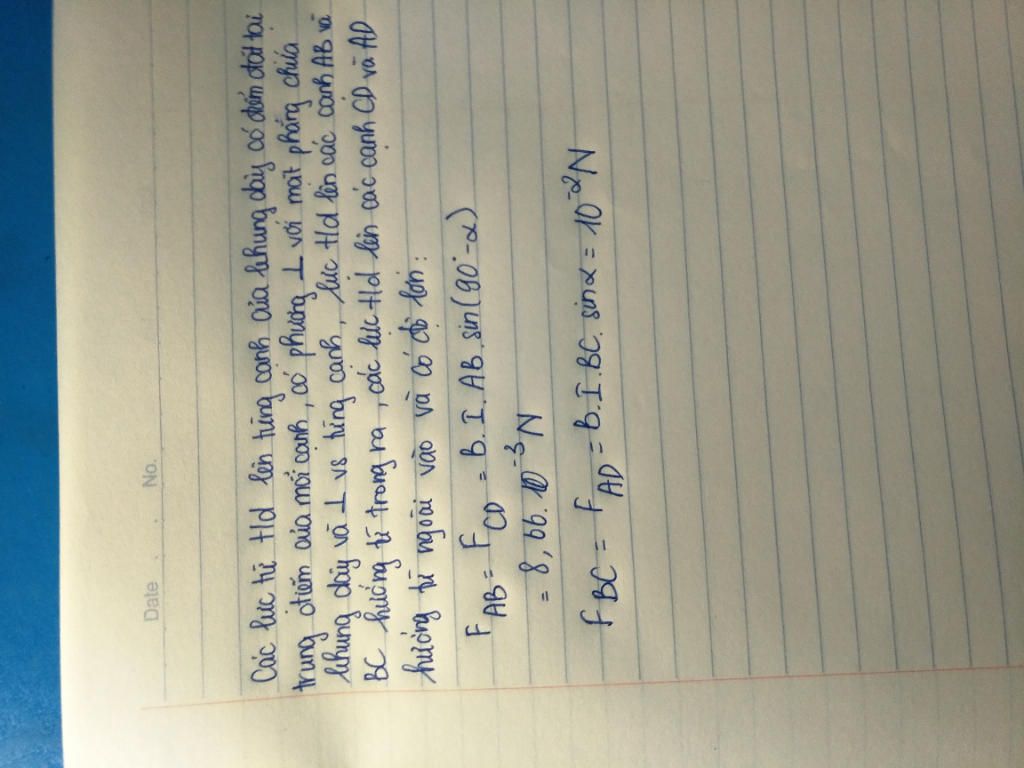 Date . . No.
Các lực từ td lên từng cạnh của khung dây có điểm đặt tại
trung điểm của mỗi cạnh, có phương ⊥ với mặt phẳng chứa
khung dây và ⊥ vs từng cạnh, lực td lên các cạnh AB và
BC hướng từ trong ra, các lực td lên các cạnh CD và AD
hướng từ ngoài vào và có độ lớn:
F_AB = F_CD = B.I.AB.sin(90° - α)
= 8,66.10⁻³N
F_BC = F_AD = B.I.BC.sin α = 10⁻²N